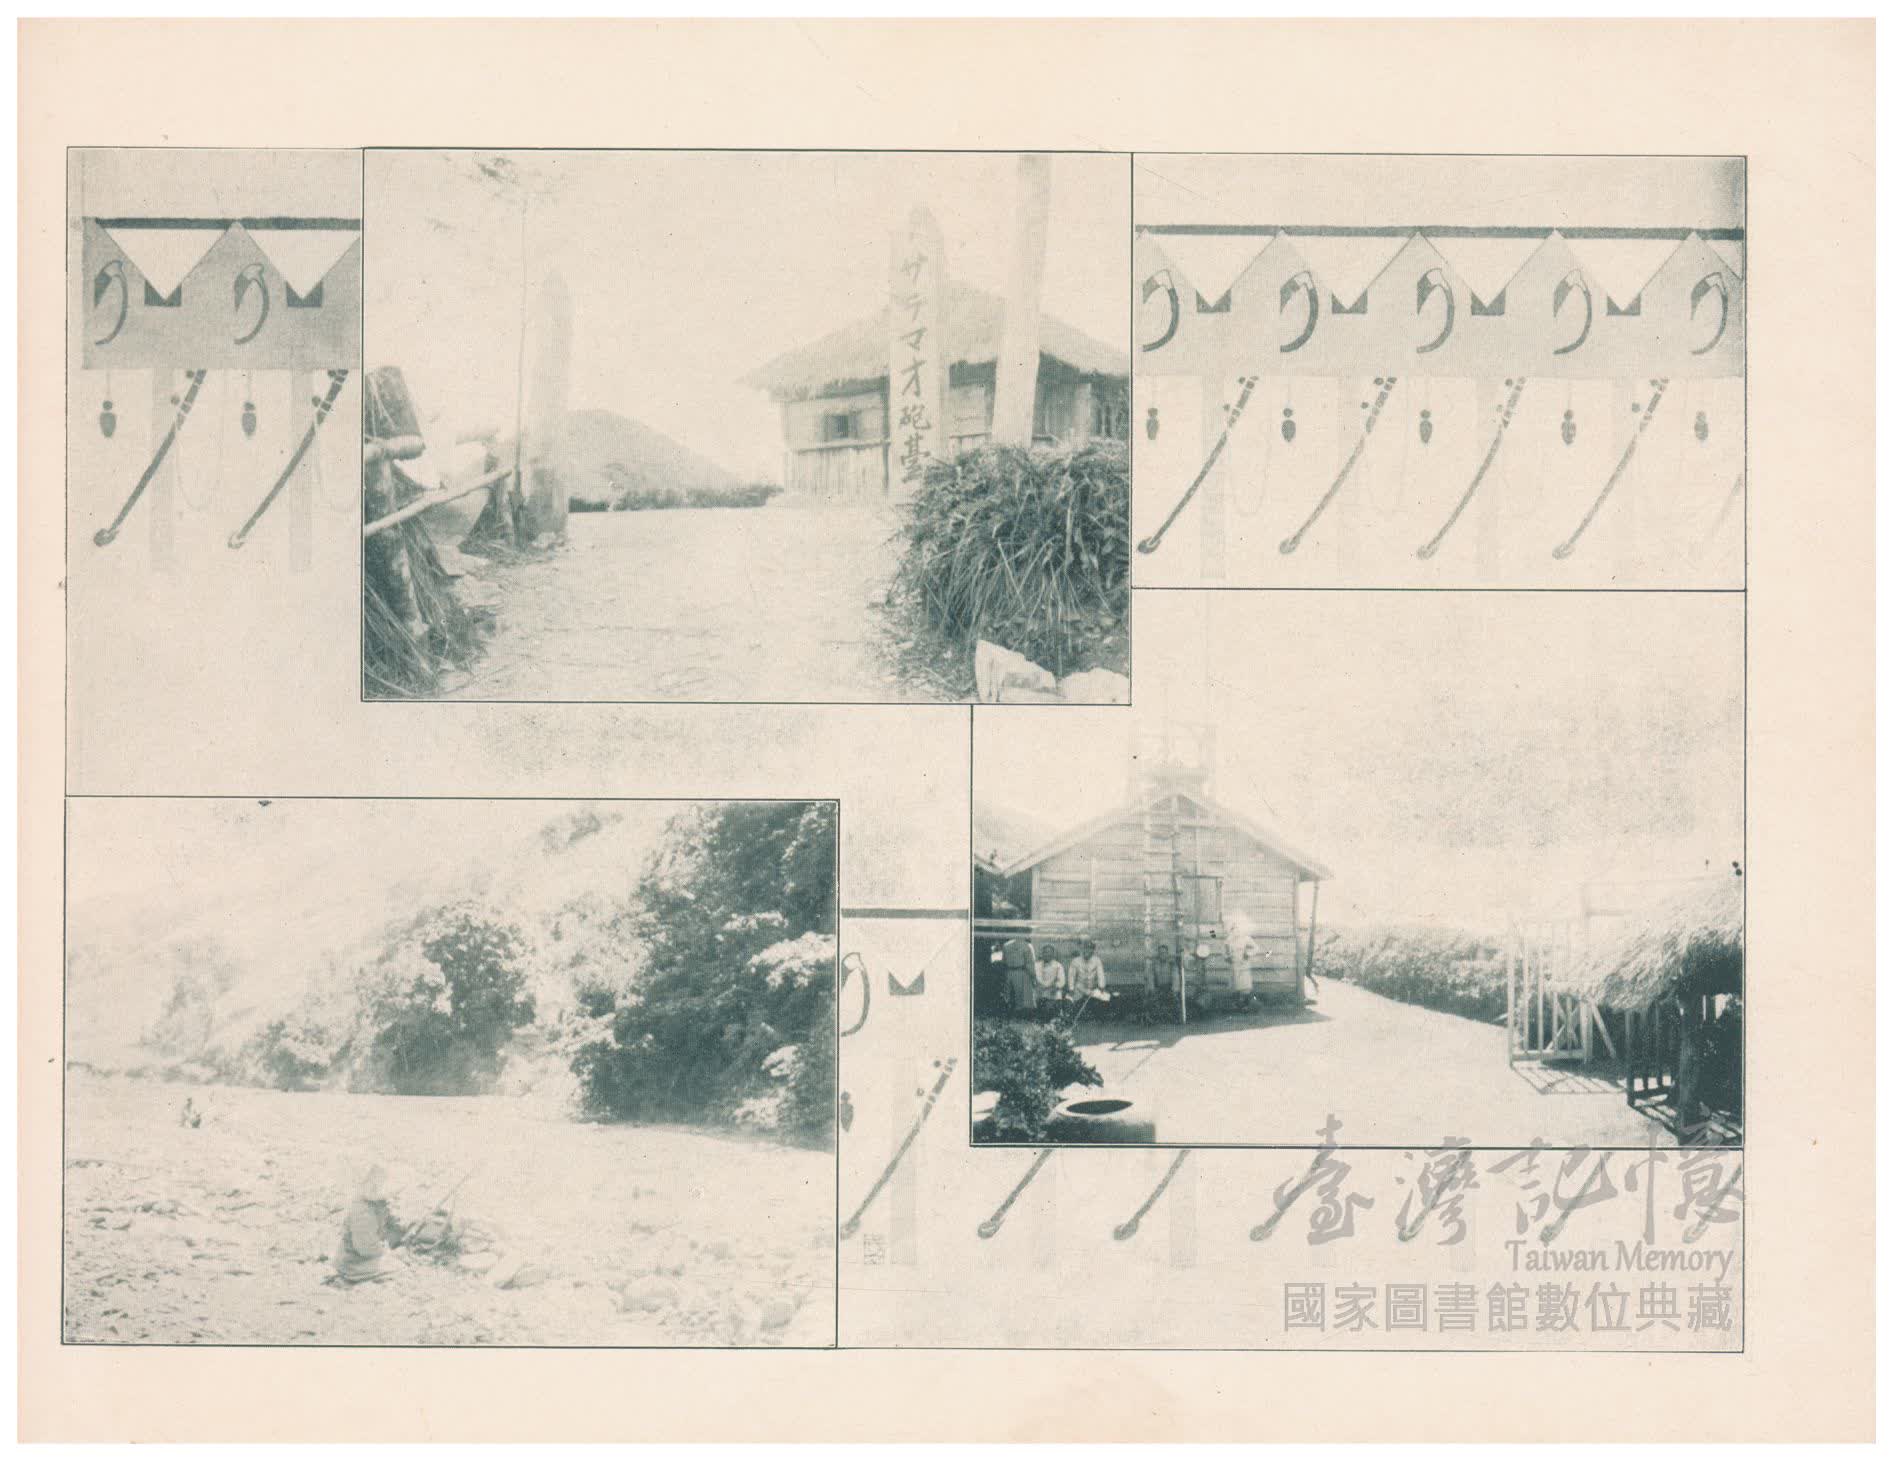 サテマオ砲臺
臺灣記憶
Taiwan Memory
國家圖書館數位典藏